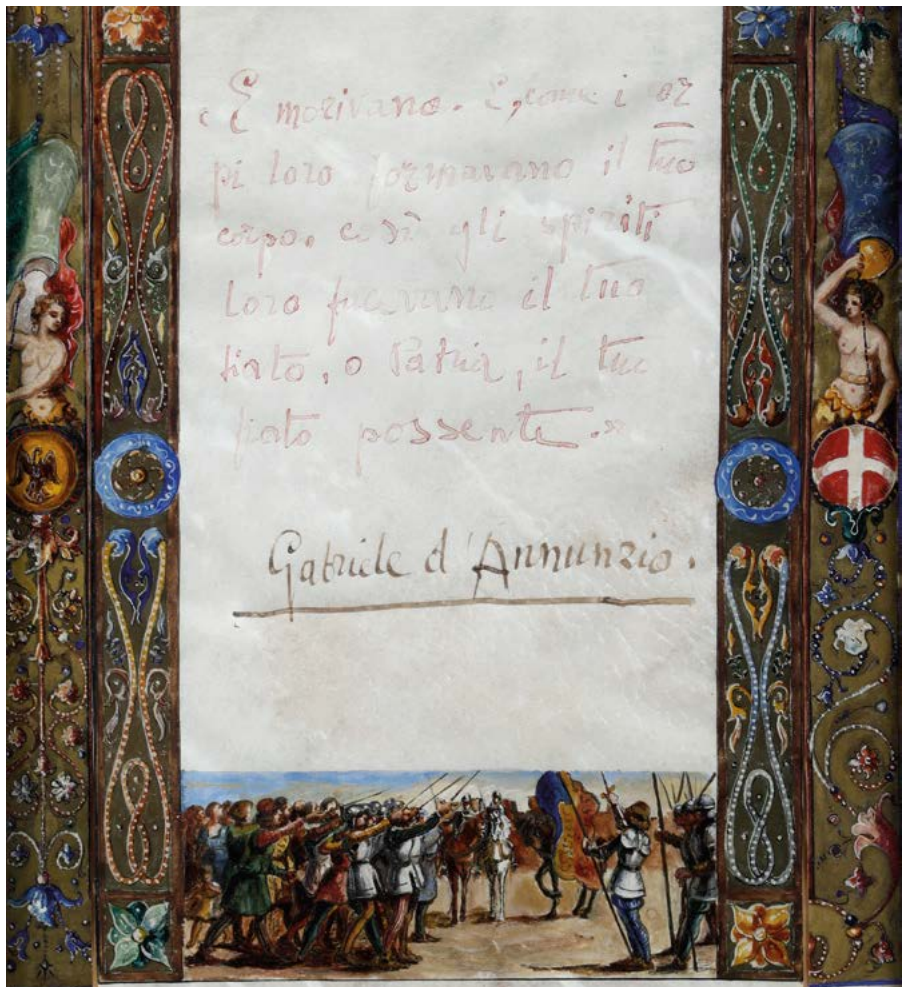 « E morivano. E, come i cor
pi loro formavano il tuo
corpo, così gli spiriti
loro facevano il tuo
fiato, o Patria, il tuo
fiato possente.»
Gabriele d'Annunzio.